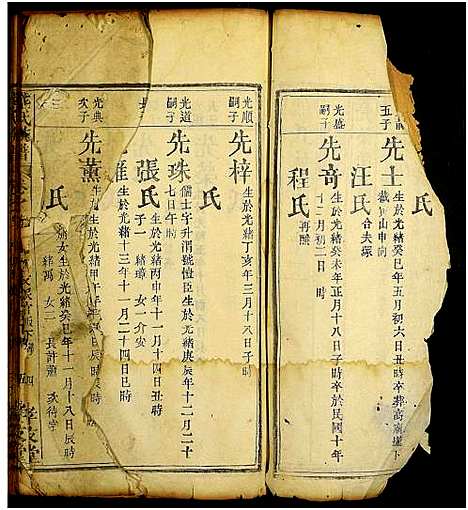 五子
先士
生於光緒癸巳年五月初六日丑時卒葬高
山申向
氏
汪氏
合夫塚
光盛嗣子
先奇
生於光緒癸未年正月十八日子時卒於民國十年
十二月初二日 時
程氏
再醮
光順嗣子
先梓
生於光緒丁亥年三月十八日子時
氏
光道嗣子
先珠
儒士字升渭號愷臣生於光緒庚辰年十二月二十
七日午時
張氏
生於光緒丙申年十一月十四日丑時
一子 緒璋 女一介安
氏
生於光緒十三年十一月二十四日巳時
光典次子
先薰
生於光緒甲午年
日辰時
氏
女生於光緒癸巳年十一月十八日辰時
緒萬 女二 長許蕭 次待字
氏
譜